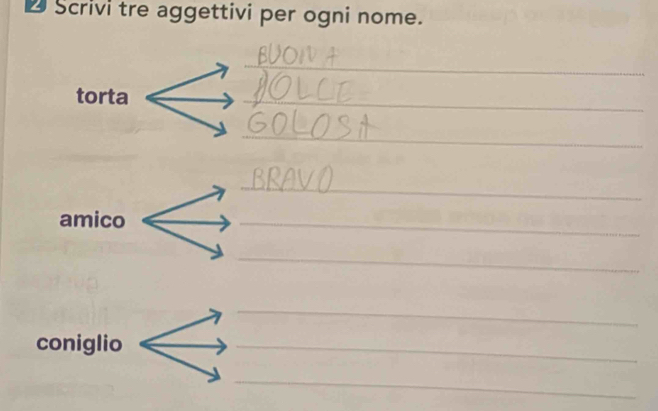 2 Scrivi tre aggettivi per ogni nome.
BUONA
torta
DOLCE
GOLOSA
BRAVO
amico
coniglio